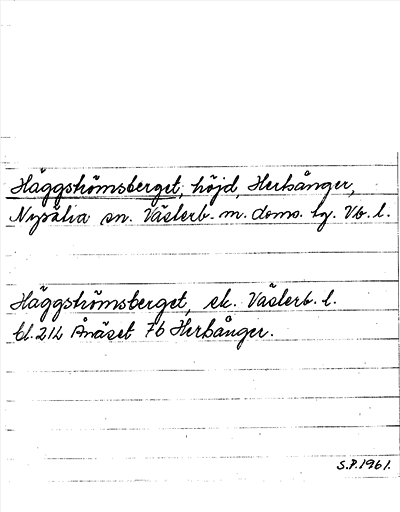 Häggströmsberget, höjd, Hertsånger,
Nysätra sn. Västerb. m. doms. tg. Vb. l.
Häggströmsberget, ek. Västerb. l.
bl. 212 Ånäset 7b Hertsånger.
S.P. 1961.